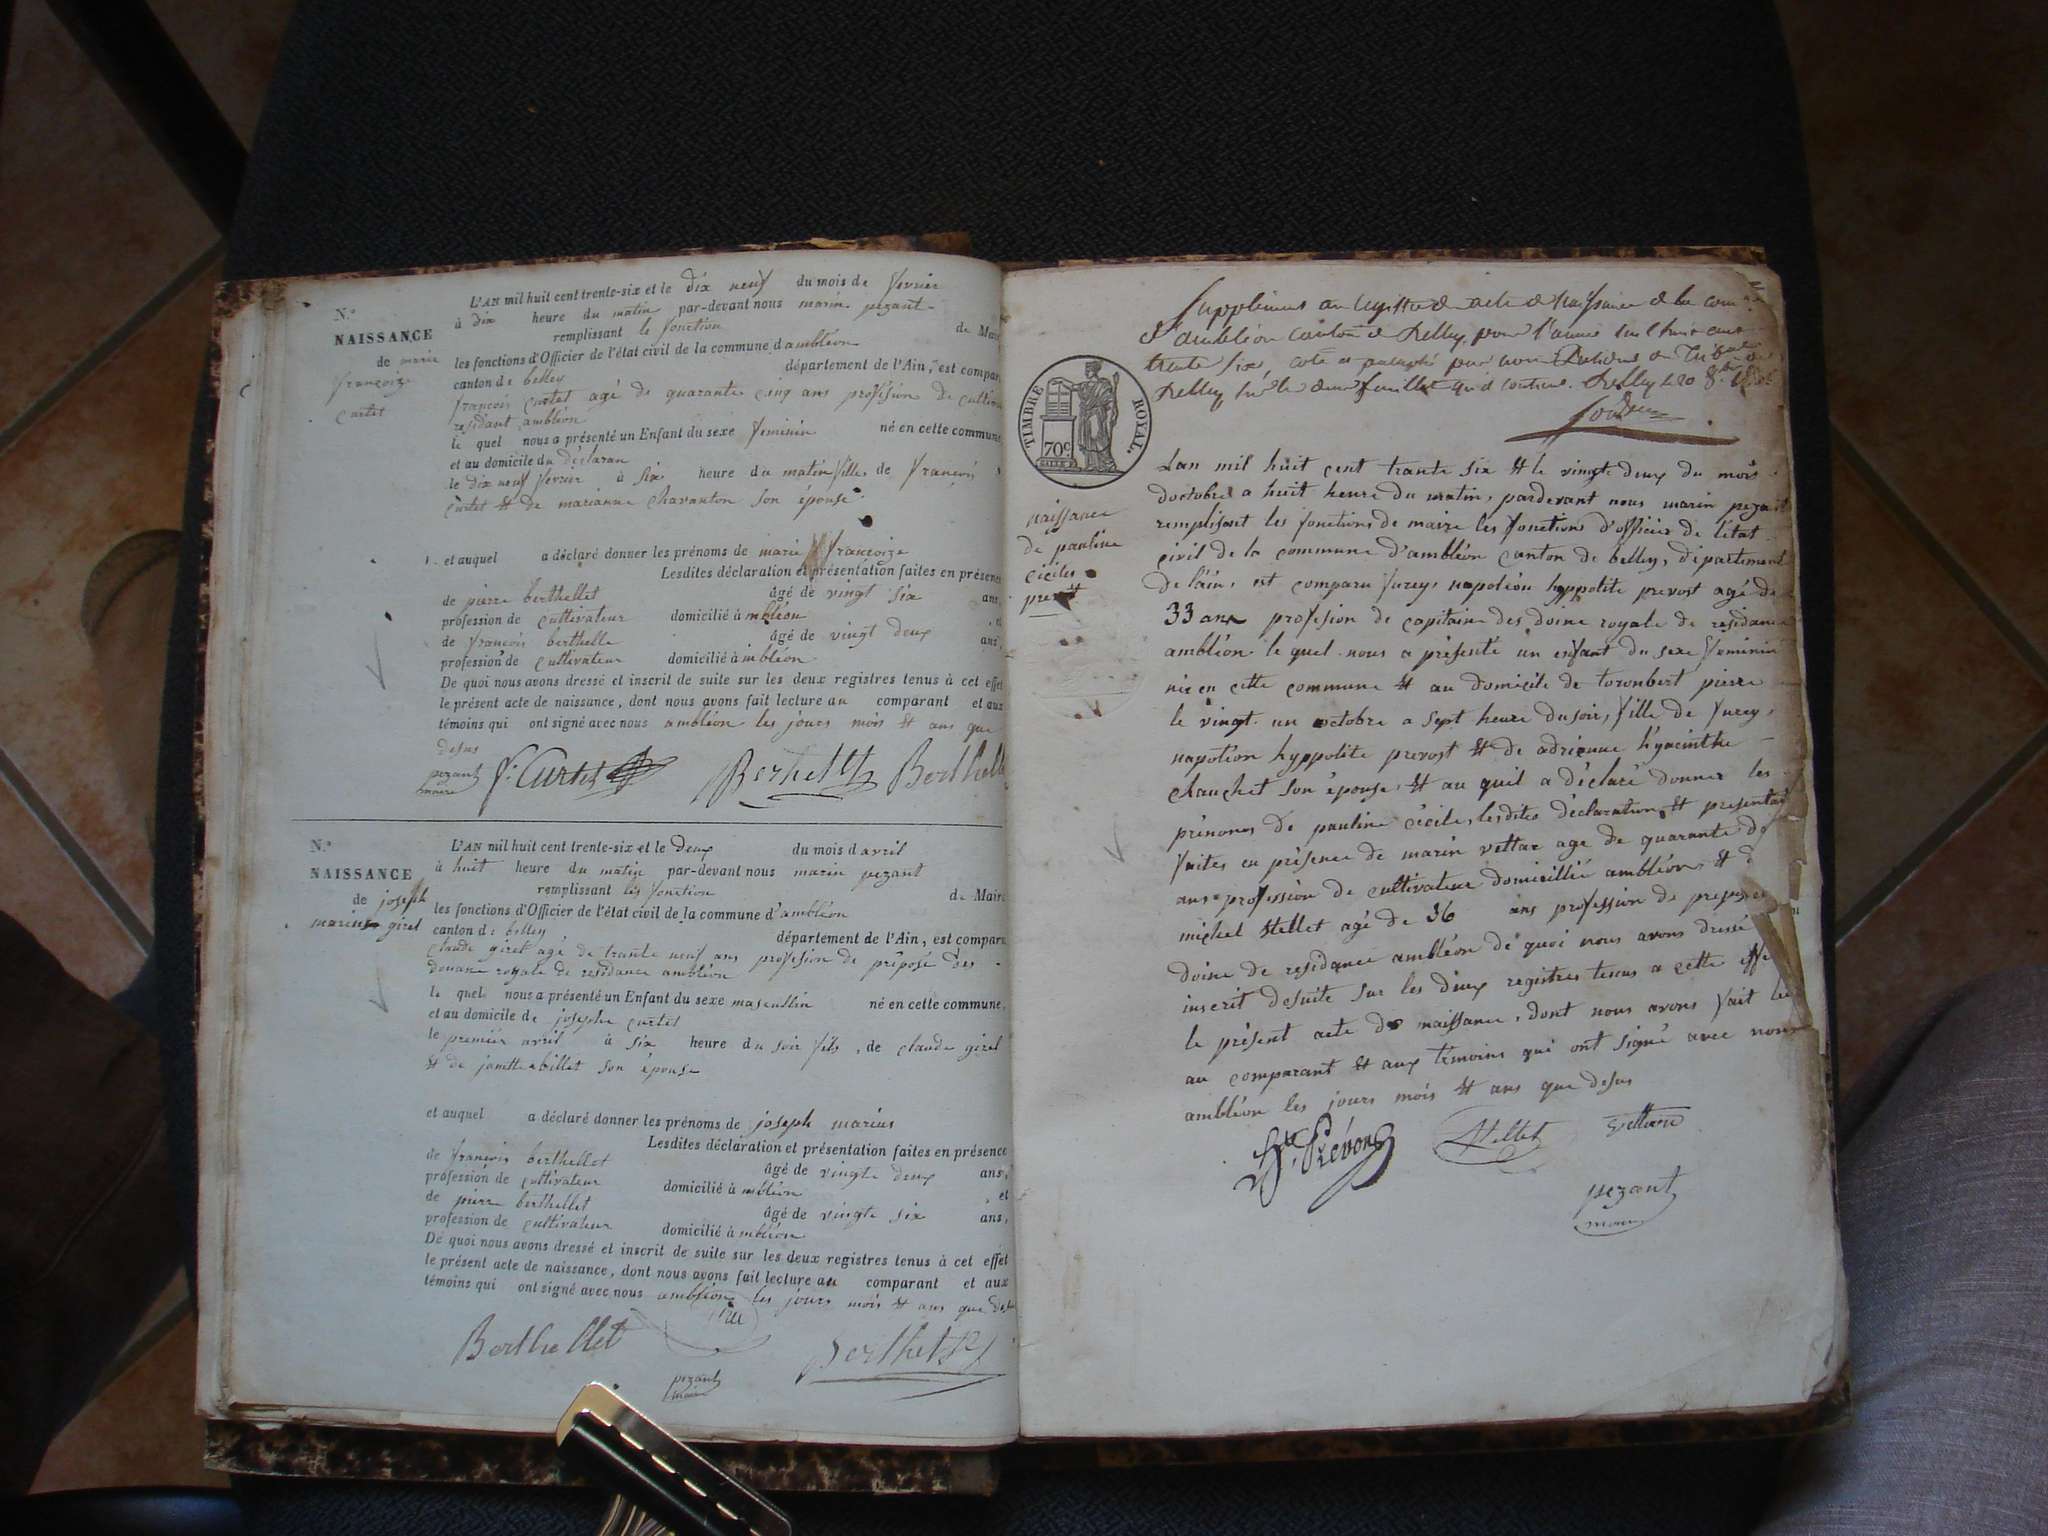 N.º
NAISSANCE
de marie
françoize
curtet
L'AN mil huit cent trente-six et le dix neuf du mois de fevrier
à dix heure du matin par-devant nous marin pezant
remplissant le fonction de Mair
les fonctions d'Officier de l'état civil de la commune d'ambléon
canton de belley département de l'Ain, est compar
françois curtet agé de quarante cinq ans profésion de cultiv
residant ambléon
le quel nous a présenté un Enfant du sexe feminin né en cette commune
et au domicile du déclaran
le dix neuf fevrier à six heure du matin fille de françois
curtet et de marianne chavanton son épouse
et auquel a déclaré donner les prénoms de marie françoize
Lesdites déclaration et présentation faites en présence
de pierre berthellet âgé de vingt six ans,
profession de cultivateur domicilié à mbléon , et
de françois berthelle âgé de vingt deux ans,
profession de cultivateur domicilié à mbléon
De quoi nous avons dressé et inscrit de suite sur les deux registres tenus à cet effet
le présent acte de naissance, dont nous avons fait lecture au comparant et aux
témoins qui ont signé avec nous ambléon les jours mois et ans que
desus
pezant
maire
f. Curtet Berthellet Berthelle
N.º
NAISSANCE
de joseph
marius giret
L'AN mil huit cent trente-six et le deux du mois d avril
à huit heure du matin par-devant nous marin pezant
remplissant les fonction de Maire
les fonctions d'Officier de l'état civil de la commune d'ambléon
canton de belley département de l'Ain, est comparu
claude giret agé de trante neuf ans profésion de préposé des
douane royale de residance ambléon
le quel nous a présenté un Enfant du sexe masculin né en cette commune,
et au domicile de josephe curtet
le premier avril à six heure du soir fils, de claude giret
et de janette billet son épouse
et auquel a déclaré donner les prénoms de joseph marius
Lesdites déclaration et présentation faites en présence
de françois berthellet âgé de vingte deux ans,
profession de cultivateur domicilié à mbléon , et
de pierre berthellet âgé de vingte six ans,
profession de cultivateur domicilié à mbléon
De quoi nous avons dressé et inscrit de suite sur les deux registres tenus à cet effet
le présent acte de naissance, dont nous avons fait lecture au comparant et aux
témoins qui ont signé avec nous ambléon les jours mois et ans que
Berthellet
pezant
maire
Berthellet
Supplément au registre de acte de naissance de la com
d'ambléon canton de Belley, pour l'année mil huit cent
trente six, coté et paraphé par nous
Belley sur le deux feuillet qu'il contient. Belley le 20 8.bre
TIMBRE ROYAL.
70c
naissance
de pauline
cécile
prevost
Lan mil huit cent trante six et le vingt deux du mois
doctobre a huit heure du matin, pardevant nous marin pezant
remplisant les fonctions de maire les fonctions d'officier de l'état
civil de la commune d'ambléon canton de belley, département
de l'ain, est comparu furey, napoléon hyppolite prevost agé de
33 ans profesion de capitaine des doine royale de residance
ambléon le quel nous a présenté un enfant du sexe feminin
née en cette commune et au domicile de toronbert pierre
le vingt un octobre a sept heure du soir, fille de furey,
napoléon hyppolite prevost et de adrienne hyacinthe
chauchet son épouse, et au quil a déclaré donner les
prénoms de pauline cécile, lesdites déclaration, et presentat
faites en présence de marin vettar age de quarante d
ans profession de cultivateur domicillié ambléon, et d
michel Hellet agé de 36 ans profession de prepose
doine de residance ambléon de quoi nous avons dressé
inscrit desuite sur les deux registres tenus a cette effe
le présent acte de naissance, dont nous avons fait le
au comparant et aux témoins qui ont signé avec nous
ambléon les jours mois et ans que desus
Prévost Hellet
pezant
maire